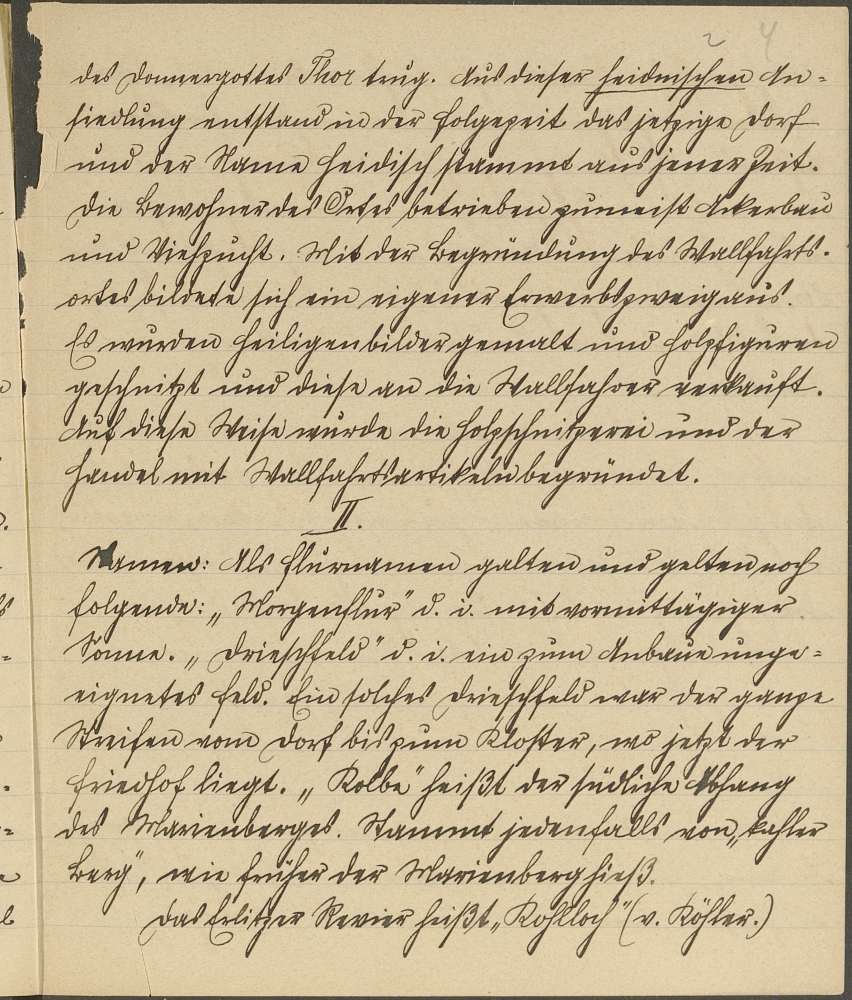 2 4
des Donnergottes Thor trug. Aus dieser heidnischen An=
siedlung entstand in der Folgezeit das jetzige Dorf
und der Name Heidisch stammt aus jener Zeit.
Die Bewohner des Ortes betrieben zumeist Ackerbau
und Viehzucht. Mit der Begründung des Wallfahrts-
ortes bildete sich ein eigener Erwerbszweig aus.
Es wurden Heiligenbilder gemalt und Holzfiguren
geschnitzt und diese an die Wallfahrer verkauft.
Auf diese Weise wurde die Holzschnitzerei und der
Handel mit Wallfahrtsartikeln begründet.
II.
Namen: Als Flurnamen galten und gelten noch
folgende: „Morgenflur" d. i. mit vormittägiger
Sonne. „Drieschfeld" d. i. ein zum Anbaue unge=
eignetes Feld. Ein solches Drieschfeld war der ganze
Streifen vom Dorf bis zum Kloster, wo jetzt der
Friedhof liegt. „Kolbe" heißt der südliche Abhang
des Marienberges. Stammt jedenfalls von „kahler
Berg", wie früher der Marienberg hieß.
Das Erlitzer Revier heißt „Kohlloch" (v. Köhler.)